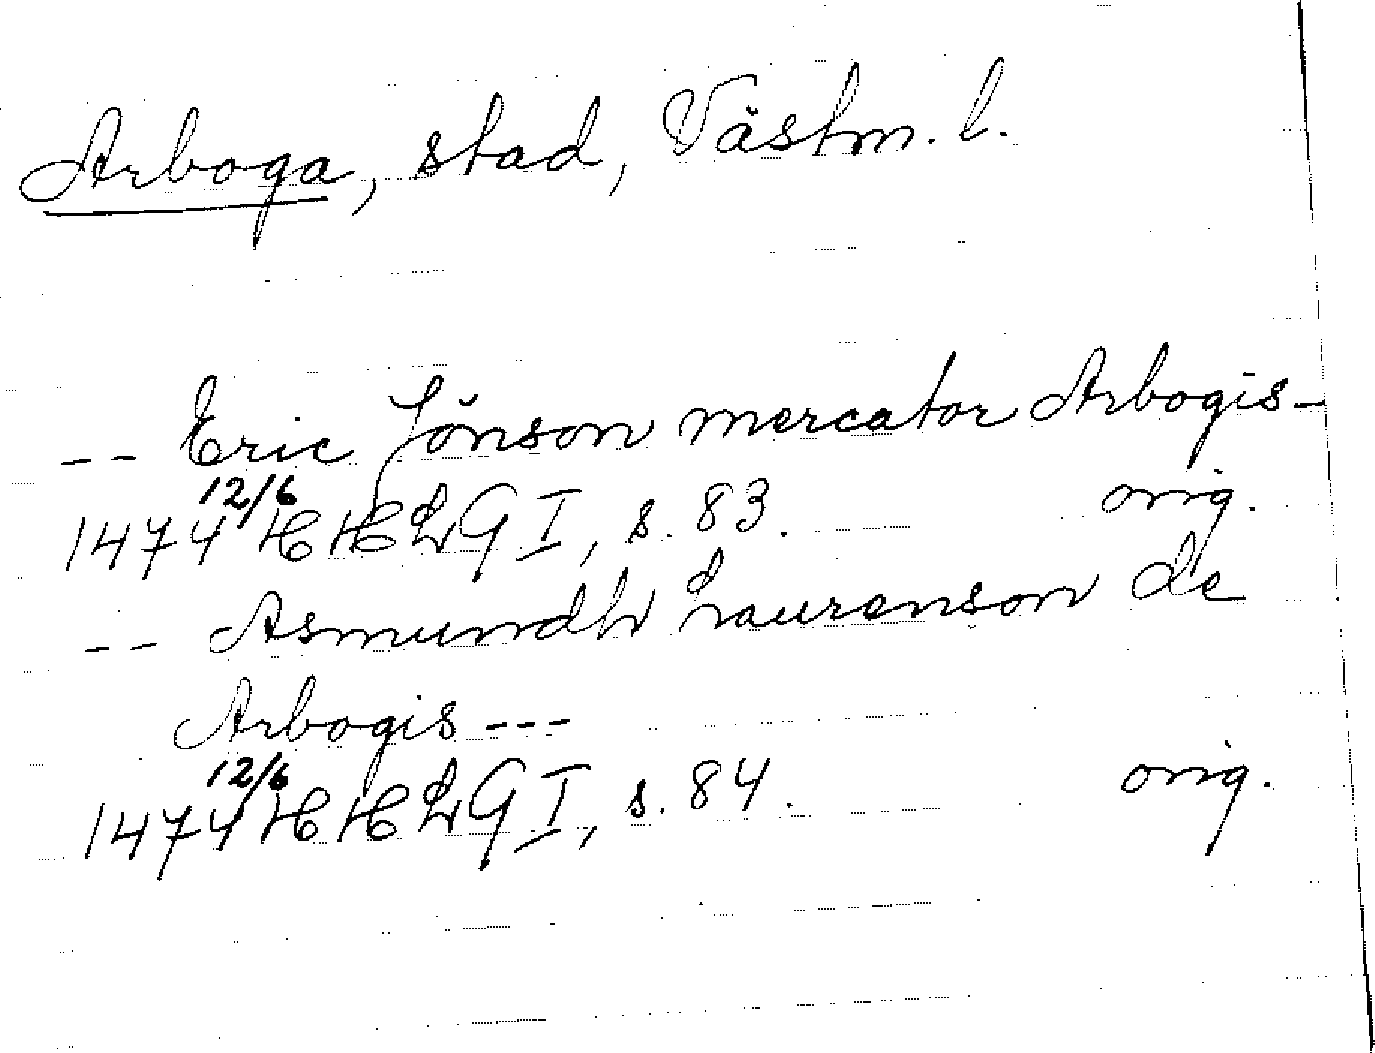 Arboga, stad, Västm. l.
-- Eric Jönson mercator Arbogis-
1474 12/6 HHLG I, s. 83. orig.
-- Asmundh Laurenson de
Arbogis ---
1474 12/6 HHLG I, s. 84. orig.